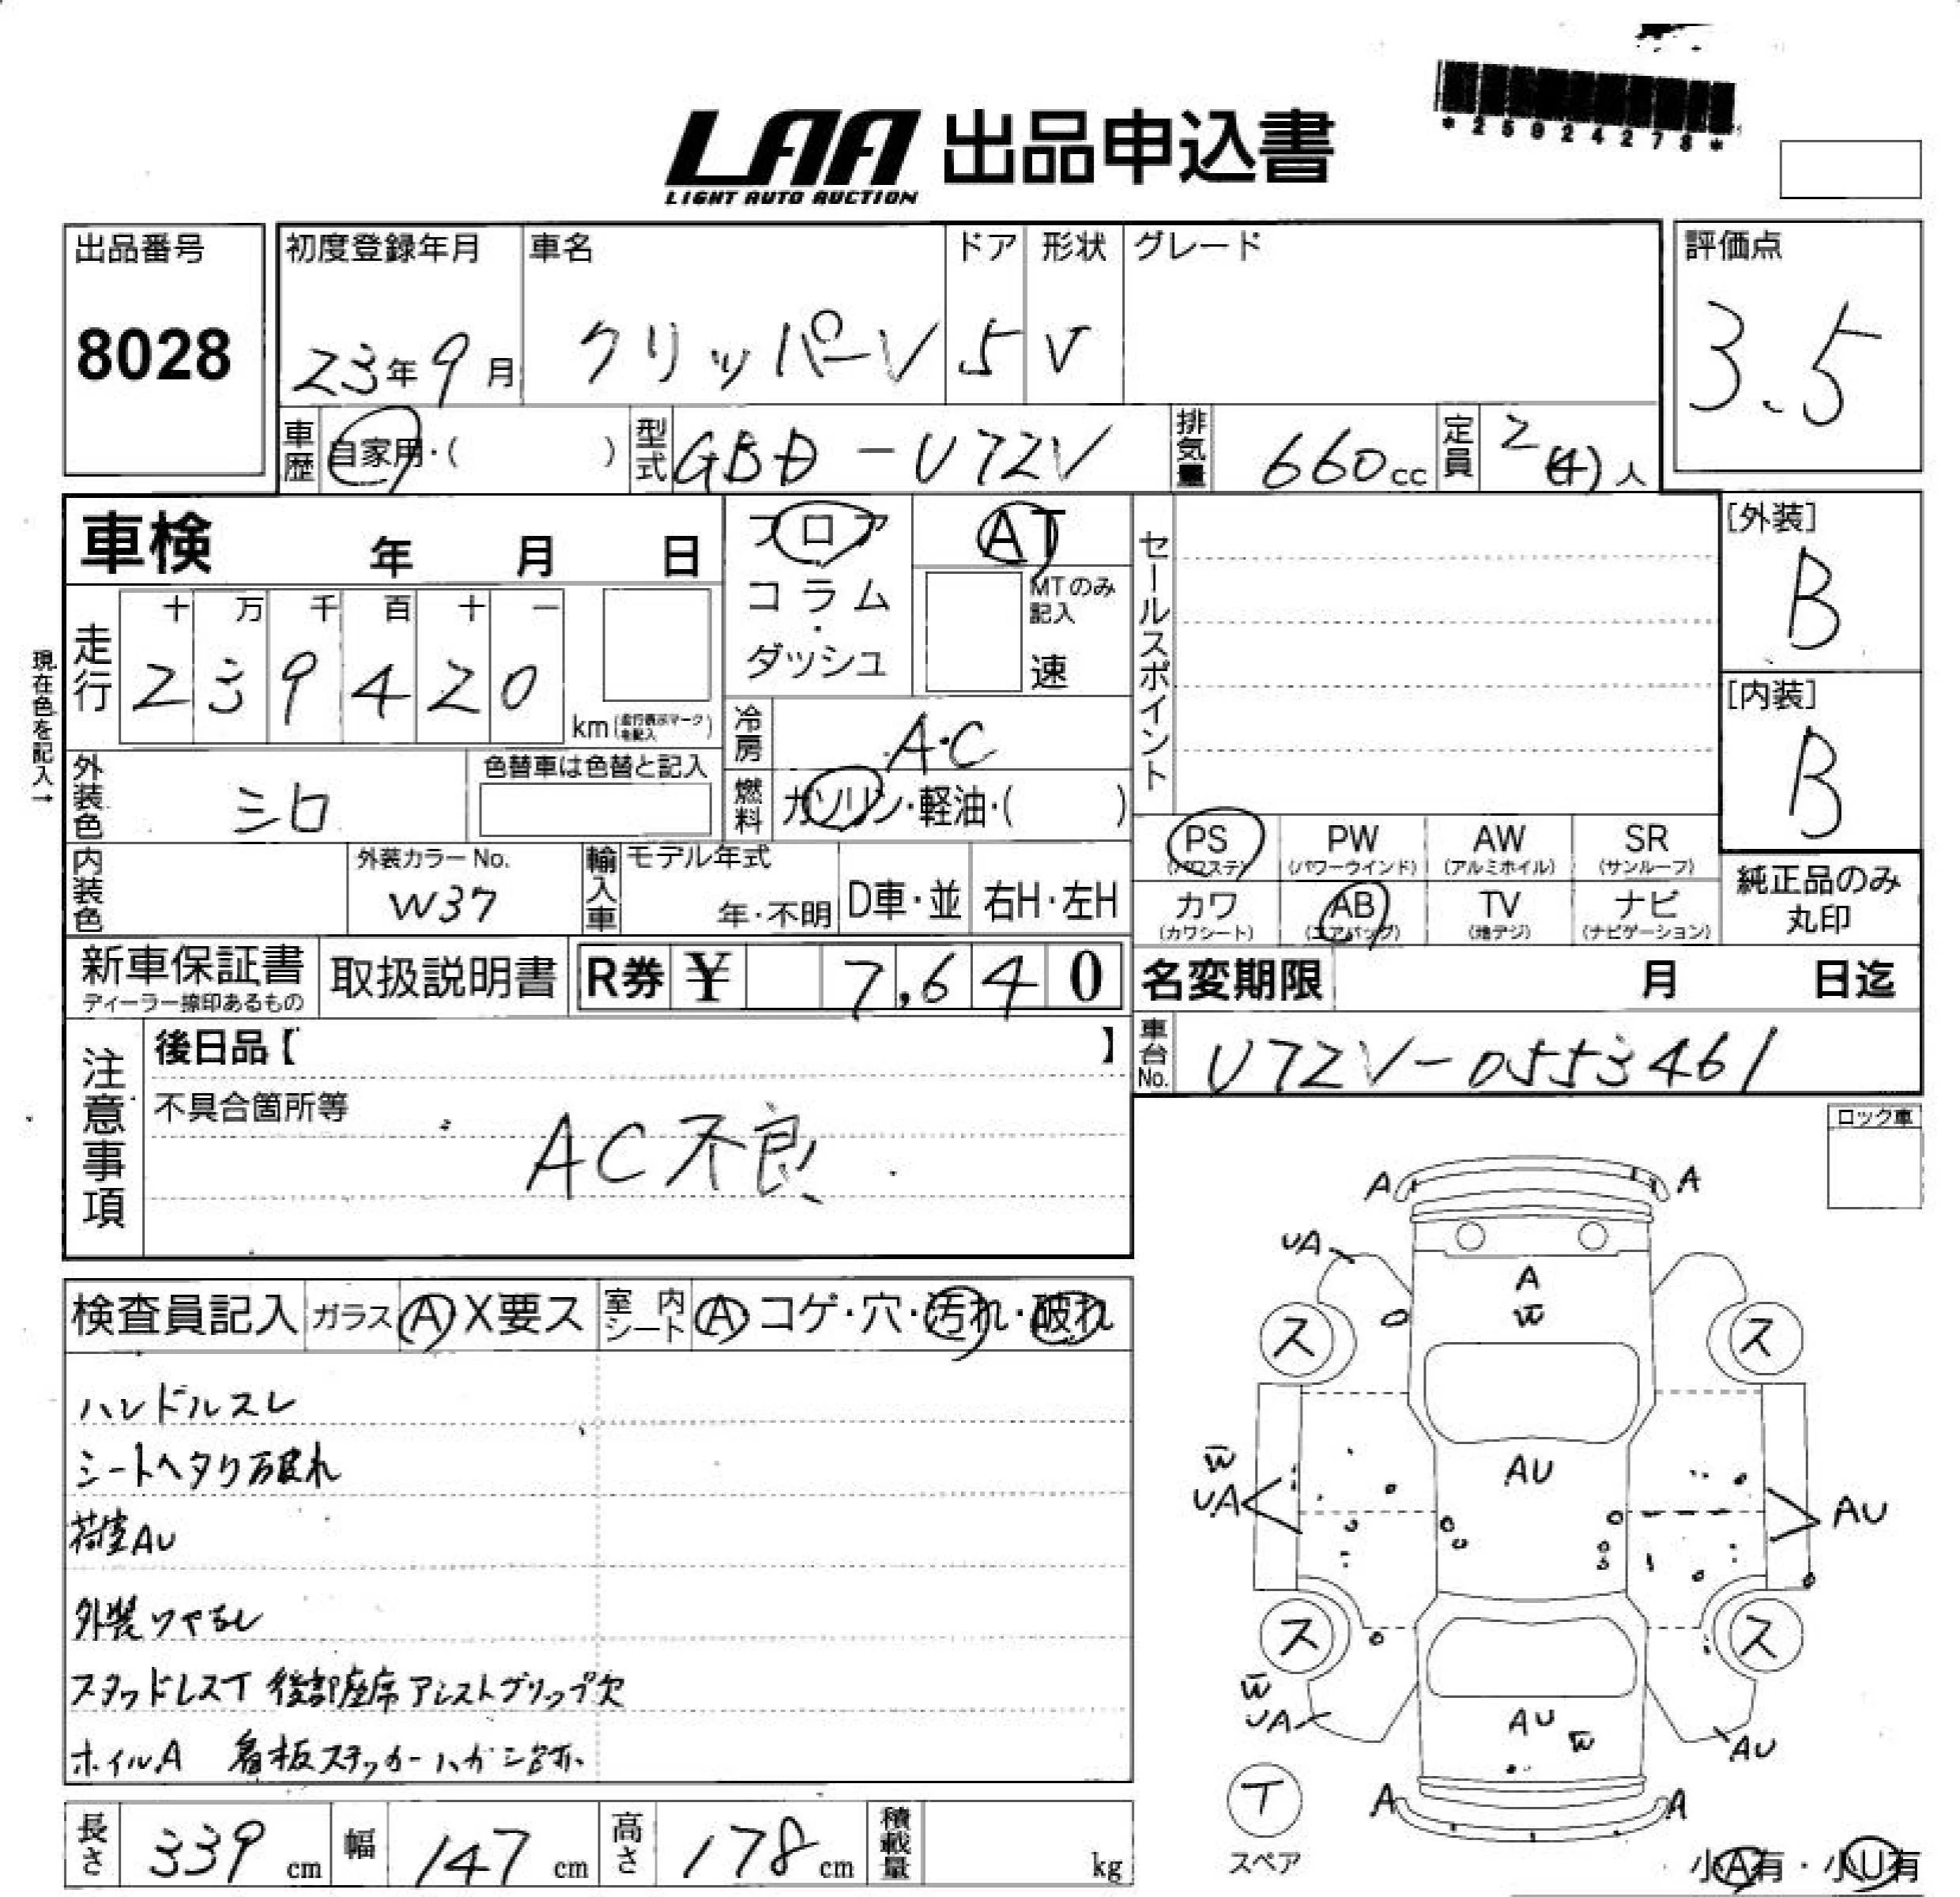 *25924278*
LAA 出品申込書
LIGHT AUTO AUCTION
出品番号
8028
初度登録年月
23年9月
車名
クリッパーV
ドア
5
形状
V
グレード
評価点
3.5
車歴
自家用・( )
型式
GBD-U72V
排気量
660cc
定員
2(4)人
車検 年 月 日
フロア
・
コラム
・
ダッシュ
AT
MTのみ
記入
速
セールスポイント
[外装]
B
[内装]
B
現在色を記入→
走行
十 万 千 百 十 一
2 3 9 4 2 0
km(走行表示マークを記入)
冷房
A・C
外装色
シロ
色替車は色替と記入
燃料
ガソリン・軽油・( )
内装色
外装カラーNo.
W37
輸入車
モデル年式
年・不明
D車・並
右H・左H
PS
(パワステ)
PW
(パワーウインド)
AW
(アルミホイル)
SR
(サンルーフ)
カワ
(カワシート)
AB
(エアバッグ)
TV
(地デジ)
ナビ
(ナビゲーション)
純正品のみ
丸印
新車保証書
ディーラー捺印あるもの
取扱説明書
R券 ¥ 7,640
名変期限 月 日迄
車台No.
U72V-0553461
注意事項
後日品【 】
不具合箇所等
AC不良
ロック車
検査員記入 ガラス A X要ス 室内シート A コゲ・穴・汚れ・破れ
ハンドルスレ
シートヘタリ破れ
荷室AU
外装ツヤなし
スタッドレスT 後部座席アシストグリップ欠
ホイルA 看板ステッカーハガシ跡
A A
UA
A
W
ス ス
W
UA
AU
AU
ス ス
W
UA
AU
W
AU
A A
T
スペア
小A有・小U有
長さ 339 cm 幅 147 cm 高さ 178 cm 積載量 kg